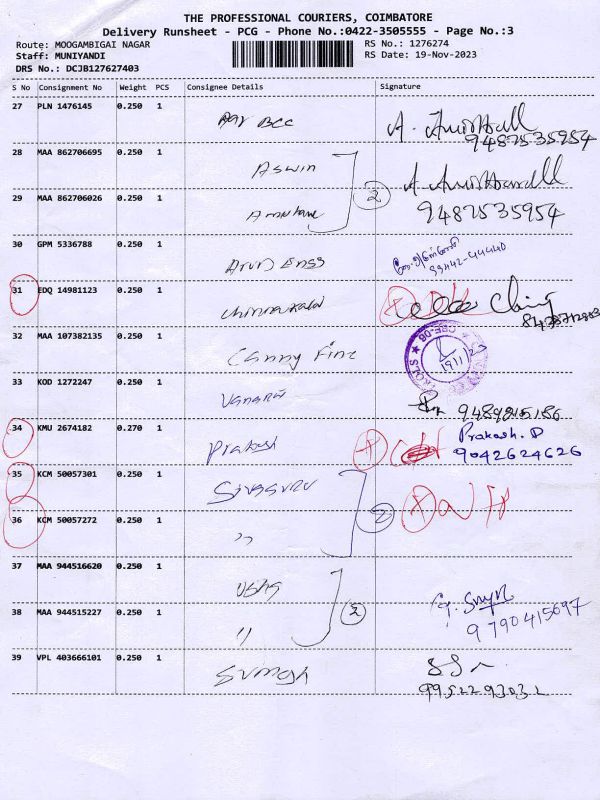 THE PROFESSIONAL COURIERS, COIMBATORE
Delivery Runsheet - PCG - Phone No.:0422-3505555 - Page No.:3
Route: MOOGAMBIGAI NAGAR RS No.: 1276274
Staff: MUNIYANDI RS Date: 19-Nov-2023
DRS No.: DCJB127627403
S No Consignment No Weight PCS Consignee Details Signature
27 PLN 1476145 0.250 1 BCC
9487535954
28 MAA 862706695 0.250 1 Aswin
29 MAA 862706026 0.250 1 2
9487535954
30 GPM 5336788 0.250 1 Arun Engg
99442-44440
31 EDQ 14981123 0.250 1
32 MAA 107382135 0.250 1 Canny Fine
33 KOD 1272247 0.250 1
34 KMU 2674182 0.270 1 Prakash Prakash. D
9042624626
35 KCM 50057301 0.250 1 Singanur
36 KCM 50057272 0.250 1 " 2
37 MAA 944516620 0.250 1
38 MAA 944515227 0.250 1 " 2
9790415697
39 VPL 403666101 0.250 1
9952293032